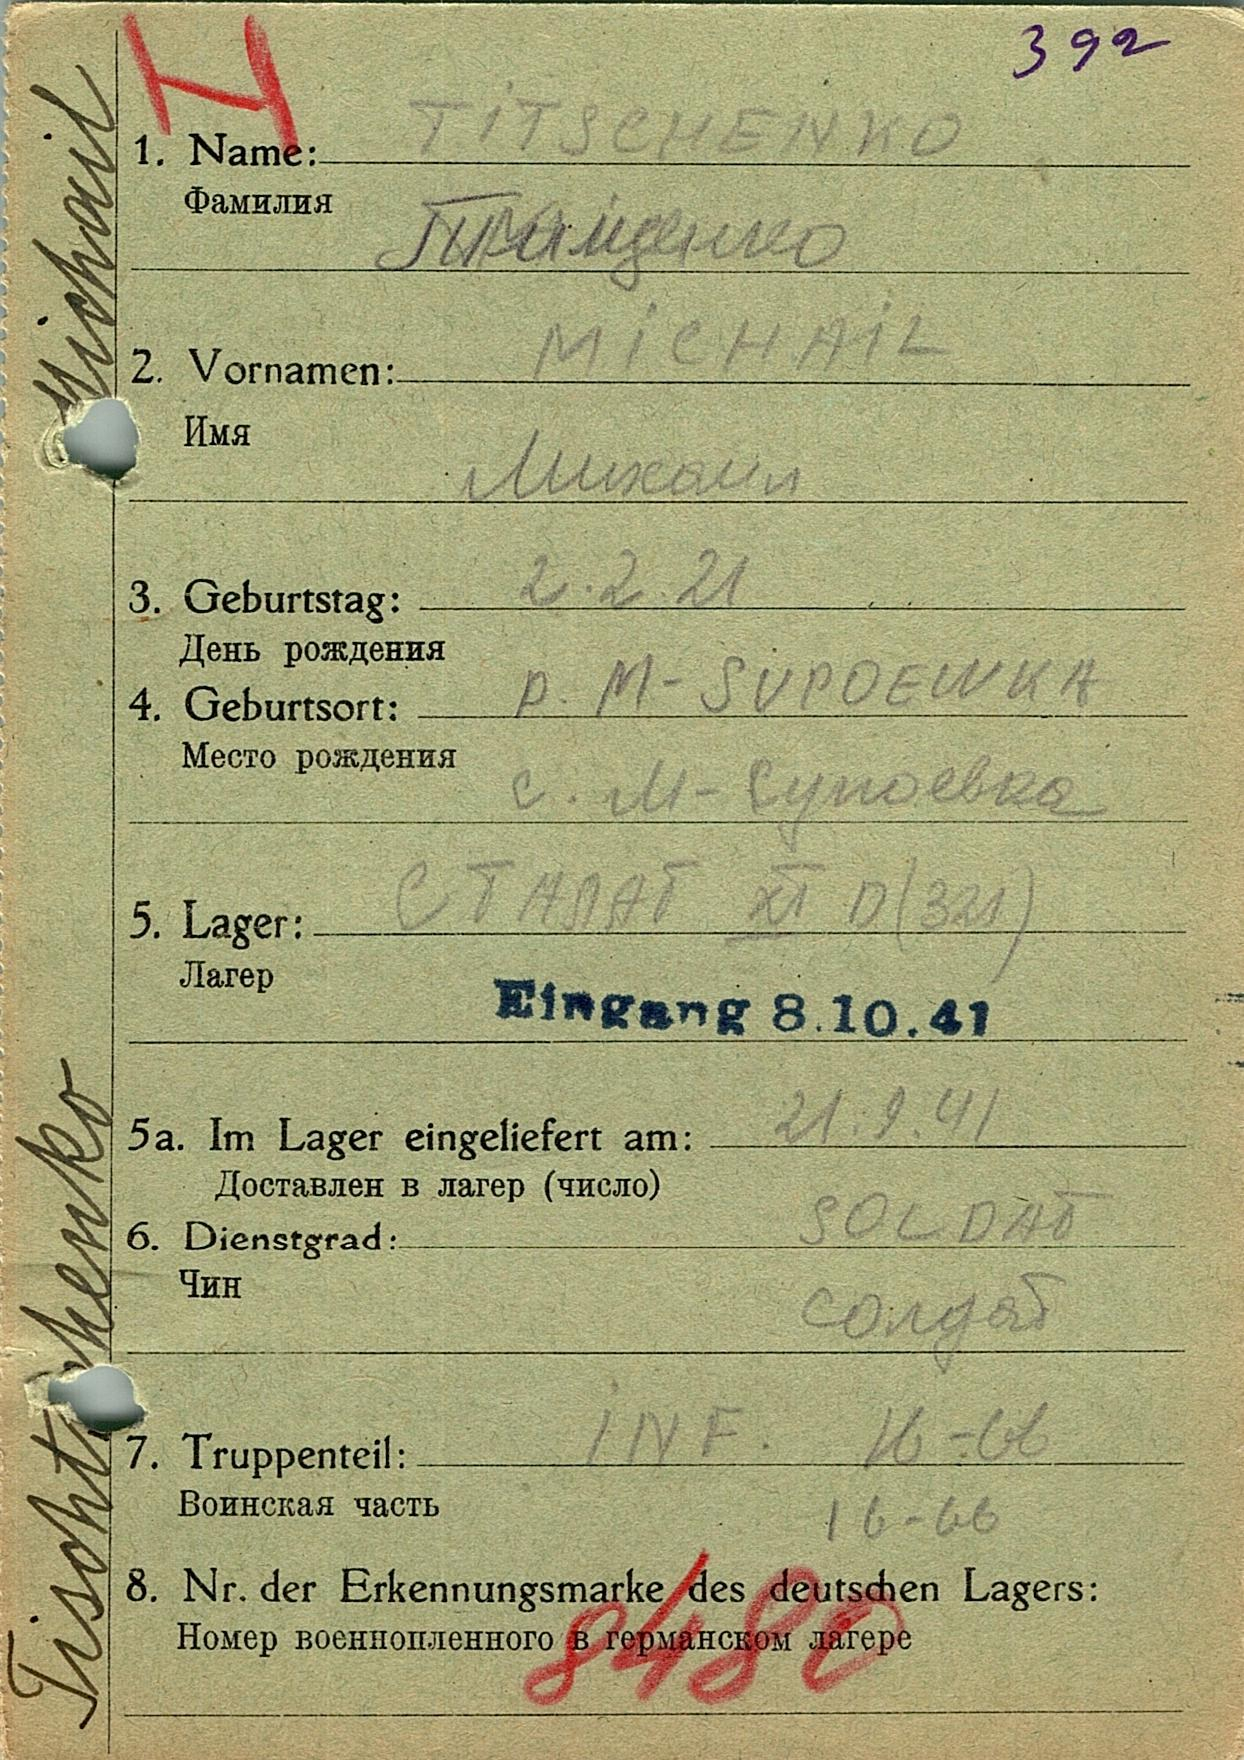 392
I
1. Name: TITSCHENKO
Фамилия
2. Vornamen: MICHAIL
Имя
Михаил
3. Geburtstag: 2.2.21
День рождения
4. Geburtsort: p. M-SUPOEWKA
Место рождения
с. М-Супоевка
5. Lager: СТАЛАГ XI D (321)
Лагер
Eingang 8.10.41
5a. Im Lager eingeliefert am: 21.9.41
Доставлен в лагер (число)
6. Dienstgrad: SOLDAT
Чин
солдат
7. Truppenteil: INF. 16-66
Воинская часть
16-66
8. Nr. der Erkennungsmarke des deutschen Lagers:
Номер военнопленного в германском лагере
8480
Tischtschenko Michail